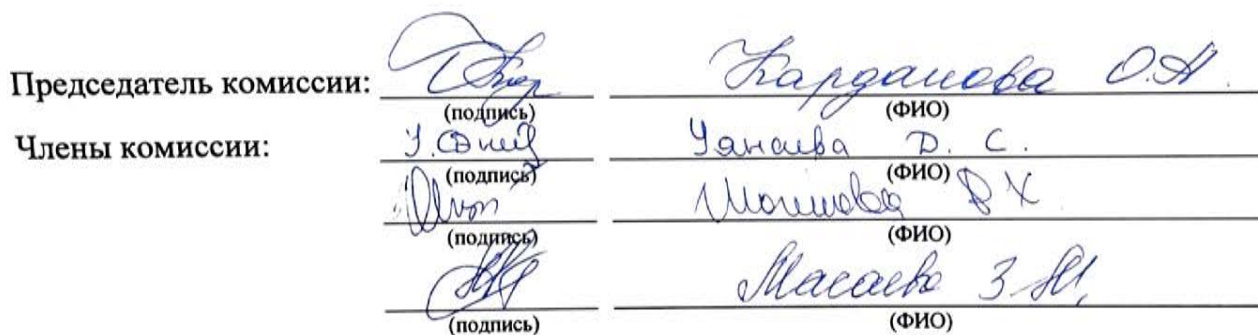 Председатель комиссии: Карданова О.А.
(подпись) (ФИО)
Члены комиссии: Уянаева D. С.
(подпись) (ФИО)
Х
(подпись) (ФИО)
Масаева З.М.
(подпись) (ФИО)